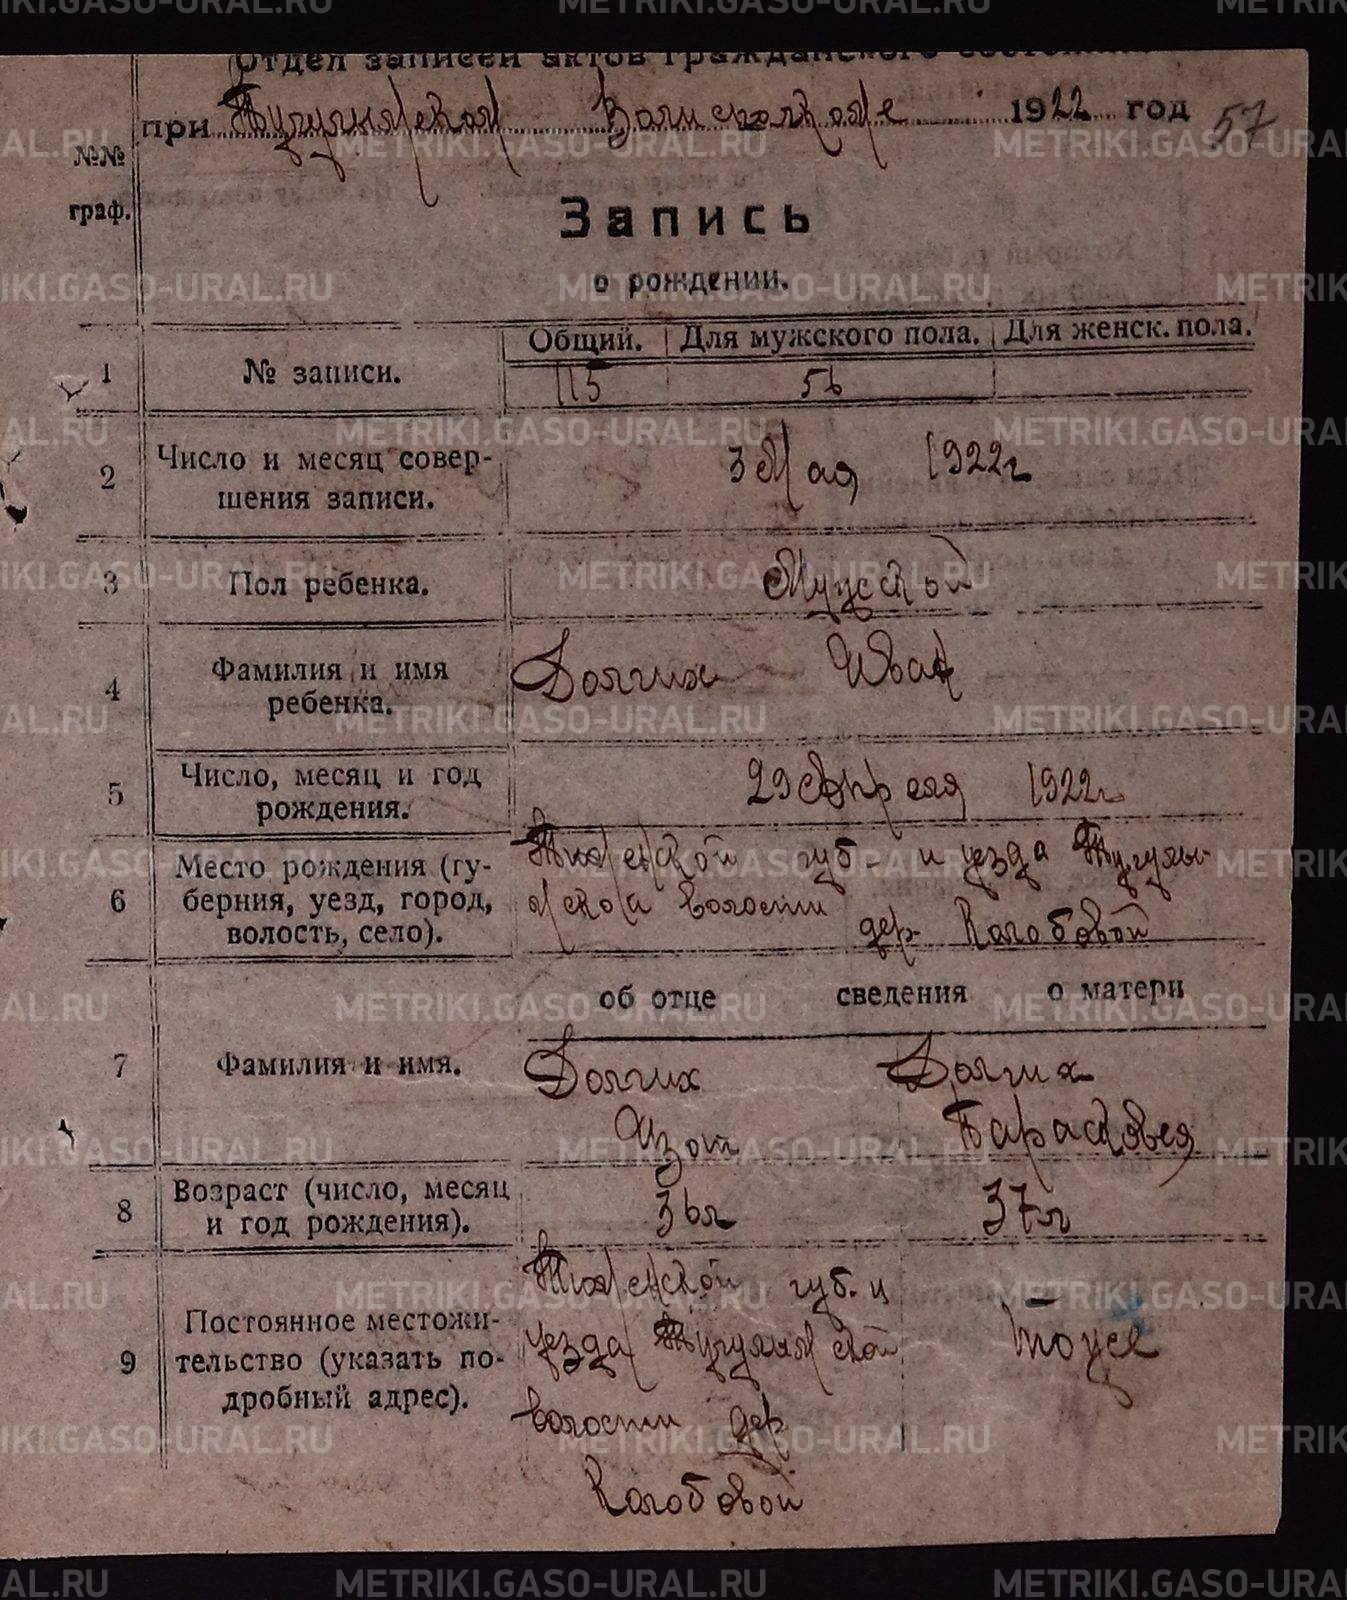 Отдел записей актов гражданского состояния
при Тугулымской Волисполкоме 1922 год 57
№№
граф.
Запись
о рождении.
Общий. Для мужского пола. Для женск. пола.
1 № записи. 115 56
2 Число и месяц совер-
шения записи. 3 Мая 1922 г
3 Пол ребенка. Мужской
4 Фамилия и имя
ребенка. Долгих Иван
5 Число, месяц и год
рождения. 29 Апреля 1922 г
6 Место рождения (гу-
берния, уезд, город,
волость, село).
Тюменской губ- и уезда Тугулым-
ской волости
дер- Колобовой
об отце сведения о матери
7 Фамилия и имя. Долгих Долгих
Изот Парасковея
8 Возраст (число, месяц
и год рождения). 36 л 37 л
9 Постоянное местожи-
тельство (указать по-
дробный адрес).
Тюменской губ. и
уезда Тугулымской
волости дер
Колобовой
тоже
METRIKI.GASO-URAL.RU